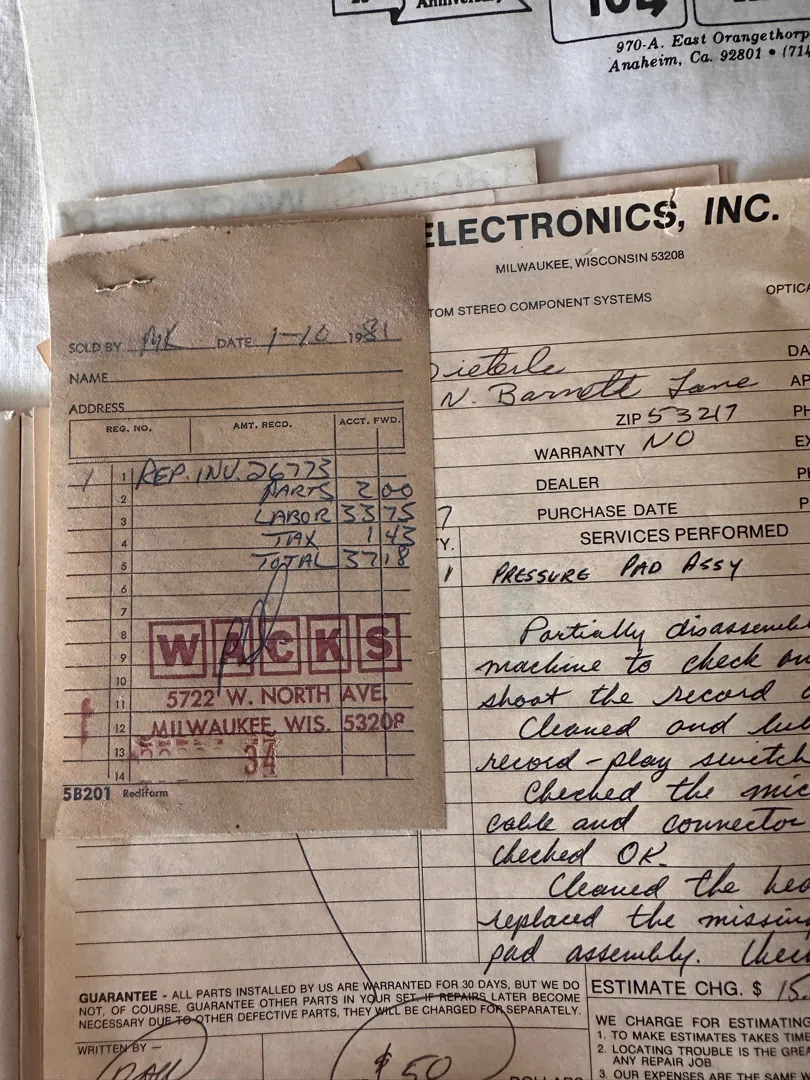 Anniversary
970-A. East Orangethorp
Anaheim, Ca. 92801 • (714
ELECTRONICS, INC.
MILWAUKEE, WISCONSIN 53208
OPTICA
TOM STEREO COMPONENT SYSTEMS
Dieterle
DA
N. Barnett Lane
AP
ZIP 53217
PH
WARRANTY NO
EX
DEALER
PURCHASE DATE
P
7
Y.
SERVICES PERFORMED
1 PRESSURE PAD ASSY
Partially disassembl
machine to check an
shoot the record
Cleaned and lub
record-play switch
Checked the mic
cable and connector
checked OK.
Cleaned the hea
replaced the missing
pad assembly. Chec
SOLD BY MK DATE 1-10 1981
NAME
ADDRESS
REG. NO. AMT. RECD. ACCT. FWD.
1 REP. INV. 26773
2 PARTS 2 00
3 LABOR 33 75
4 TAX 1 43
5 TOTAL 37 18
6
7
8
9
10
11
12
13
14
WACKS
5722 W. NORTH AVE.
MILWAUKEE, WIS. 53208
34
5B201 Rediform
GUARANTEE - ALL PARTS INSTALLED BY US ARE WARRANTED FOR 30 DAYS, BUT WE DO
NOT, OF COURSE, GUARANTEE OTHER PARTS IN YOUR SET. IF REPAIRS LATER BECOME
NECESSARY DUE TO OTHER DEFECTIVE PARTS, THEY WILL BE CHARGED FOR SEPARATELY.
WRITTEN BY —
$50
DOLLARS
ESTIMATE CHG. $ 15.
WE CHARGE FOR ESTIMATING
1. TO MAKE ESTIMATES TAKES TIME
2. LOCATING TROUBLE IS THE GREA
ANY REPAIR JOB
3. OUR EXPENSES ARE THE SAME W